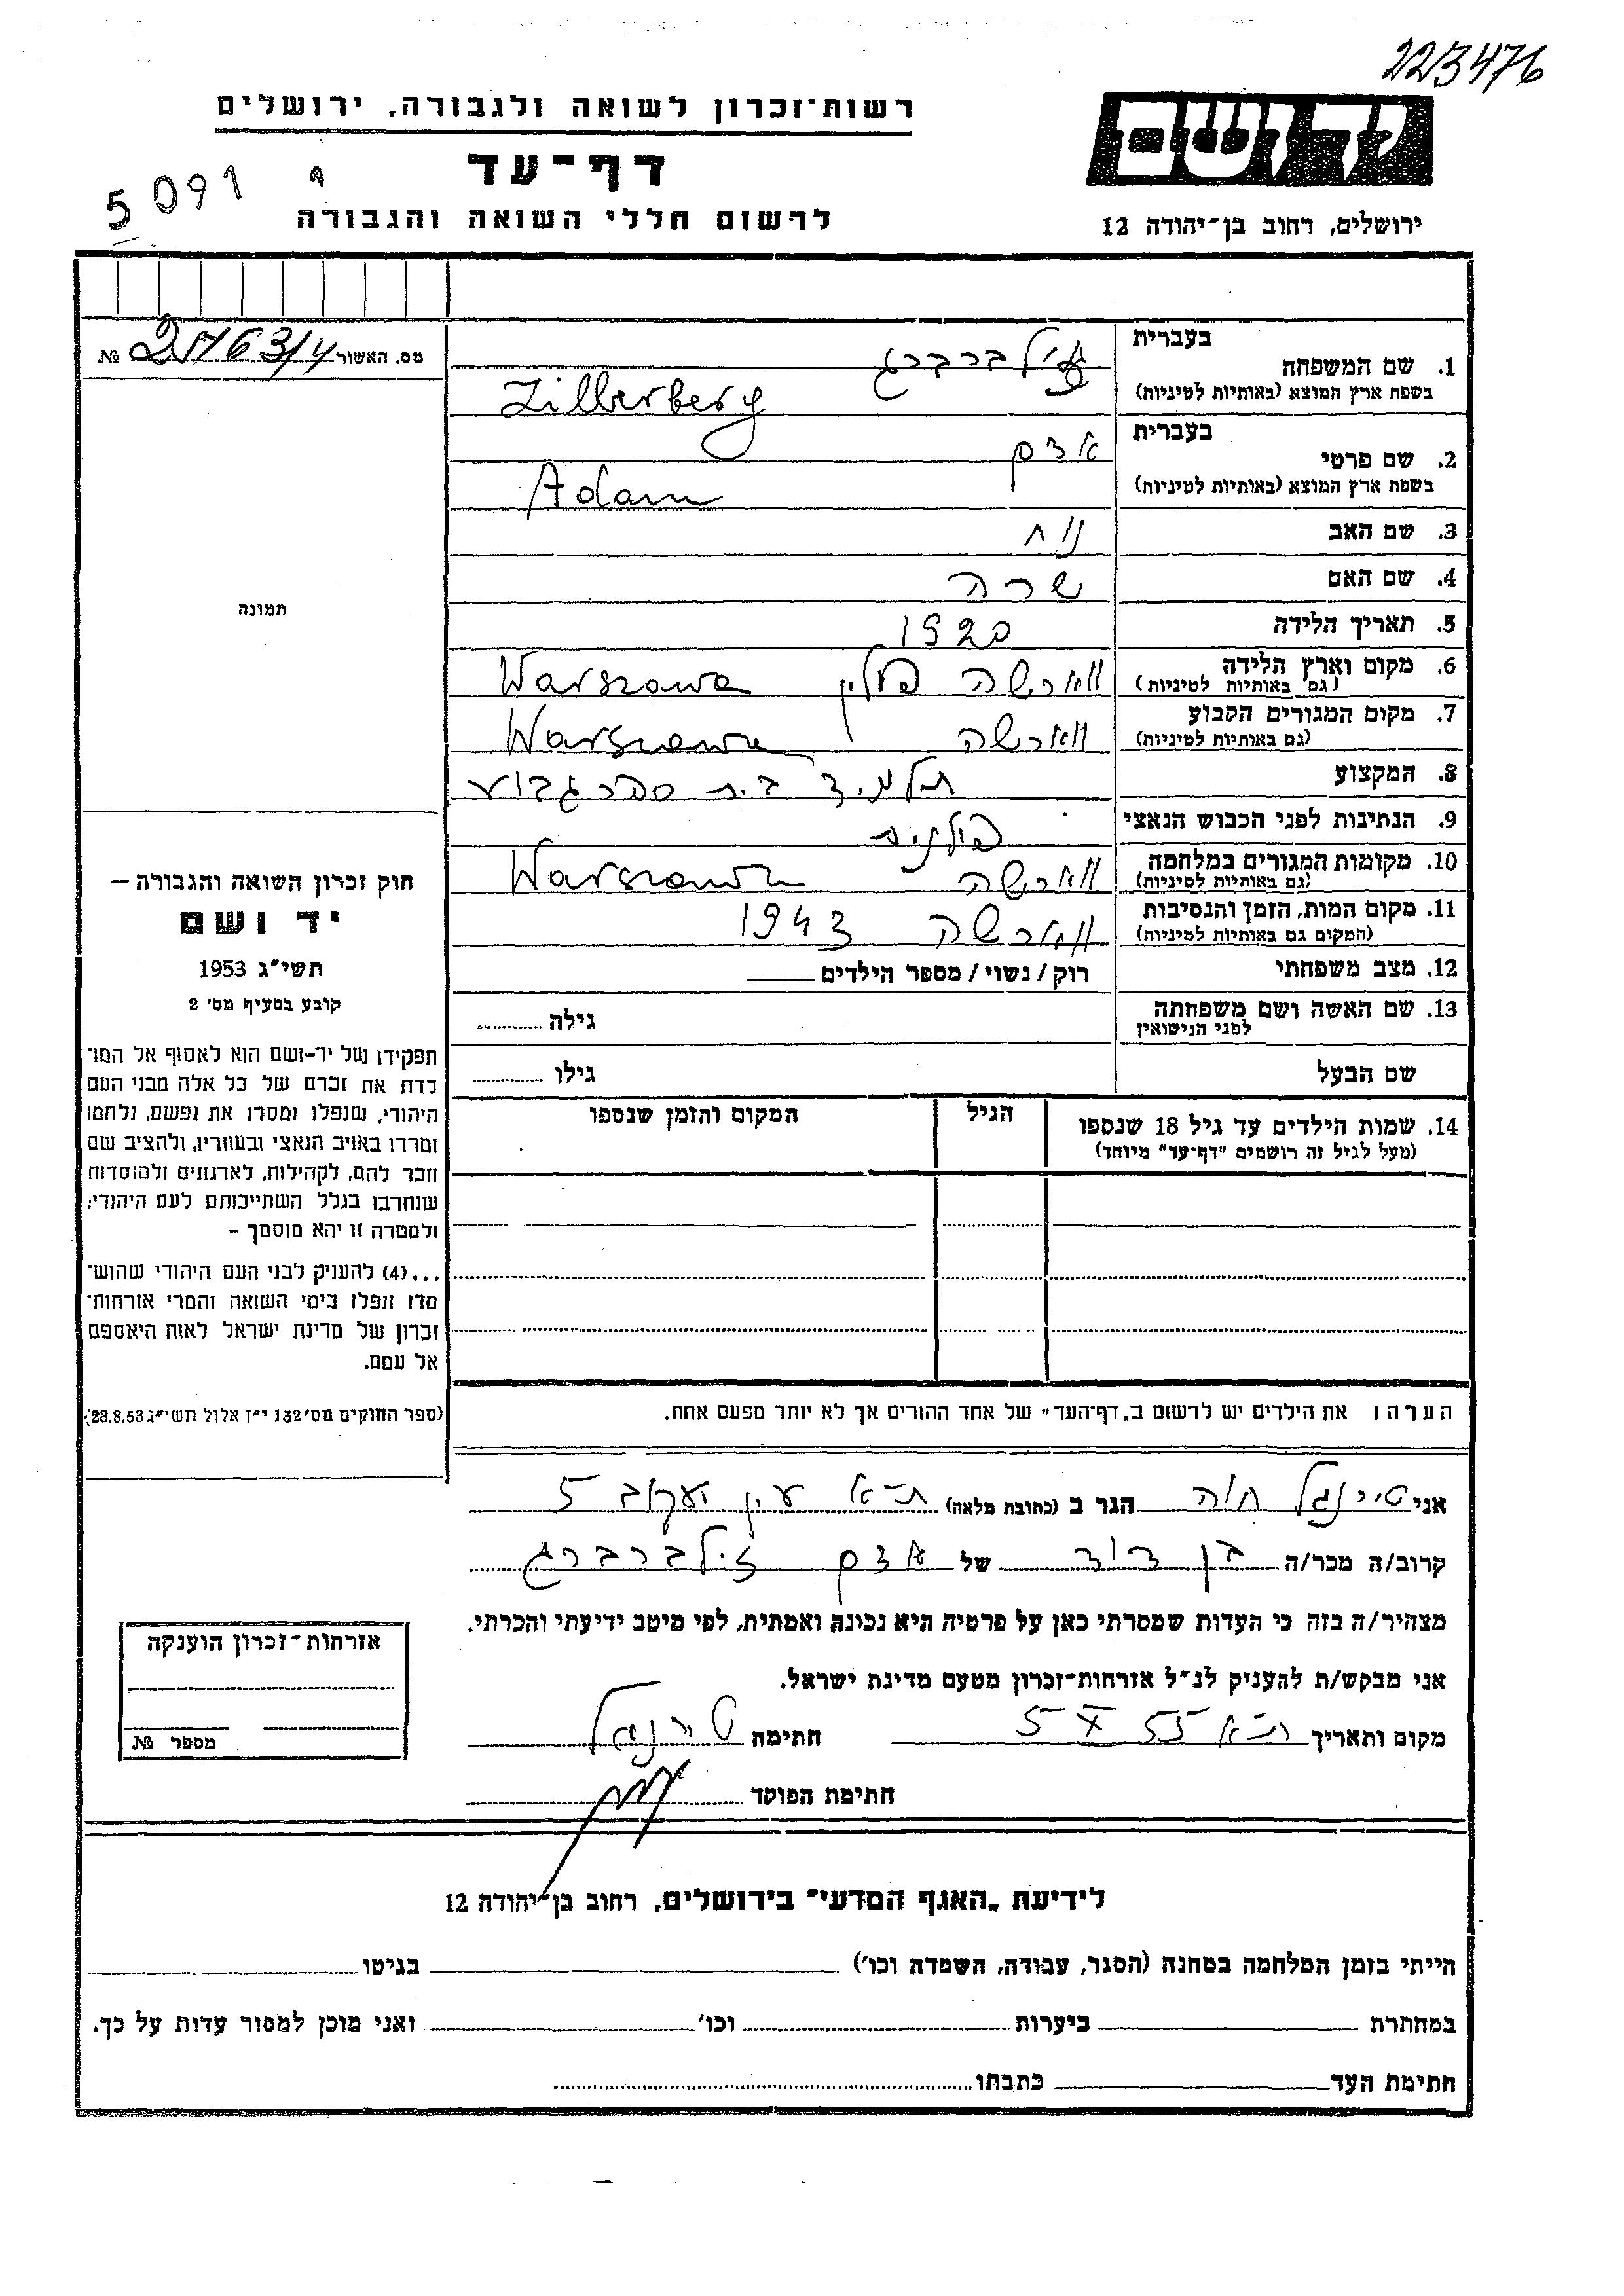 223476
רשות-זכרון לשואה ולגבורה, ירושלים
יד ושם
דף-עד
5091
לרשום חללי השואה והגבורה
ירושלים, רחוב בן-יהודה 12
מס. האשור №
בעברית
1. שם המשפחה זילברברג
בשפת ארץ המוצא (באותיות לטיניות) Zilberberg
בעברית
2. שם פרטי אדם
בשפת ארץ המוצא (באותיות לטיניות) Adam
3. שם האב נח
4. שם האם שרה
5. תאריך הלידה 1920
6. מקום וארץ הלידה ווארשה פולין Warszawa
(גם באותיות לטיניות)
7. מקום המגורים הקבוע ווארשה Warszawa
(גם באותיות לטיניות)
8. המקצוע תלמיד בית ספר גבוע
9. הנתינות לפני הכבוש הנאצי פולנית
10. מקומות המגורים במלחמה ווארשה Warszawa
(גם באותיות לטיניות)
11. מקום המות, הזמן והנסיבות ווארשה 1943
(המקום גם באותיות לטיניות)
12. מצב משפחתי רוק / נשוי / מספר הילדים
13. שם האשה ושם משפחתה גילה
לפני הנישואין
שם הבעל גילו
14. שמות הילדים עד גיל 18 שנספו הגיל המקום והזמן שנספו
(מעל לגיל זה רושמים "דף-עד" מיוחד)
תמונה
חוק זכרון השואה והגבורה –
יד ושם
תשי"ג 1953
קובע בסעיף מס' 2
תפקידו של יד-ושם הוא לאסוף אל המו־
לדת את זכרם של כל אלה מבני העם
היהודי, שנפלו ומסרו את נפשם, נלחמו
ומרדו באויב הנאצי ובעוזריו, ולהציב שם
וזכר להם, לקהילות, לארגונים ולמוסדות
שנחרבו בגלל השתייכותם לעם היהודי;
ולמטרה זו יהא מוסמך –
...(4) להעניק לבני העם היהודי שהוש־
מדו ונפלו בימי השואה והמרי אזרחות־
זכרון של מדינת ישראל לאות היאספם
אל עמם.
(ספר החוקים מס' 132 י"ז אלול תשי"ג 28.8.53)
הערה: את הילדים יש לרשום ב„דף-העד" של אחד ההורים אך לא יותר מפעם אחת.
אני טיינגל חוה הגר ב (כתובת מלאה) ת-א עין יעקוב 5
קרוב/ה מכר/ה בן דוד של אדם זילברברג
מצהיר/ה בזה כי העדות שמסרתי כאן על פרטיה היא נכונה ואמתית, לפי מיטב ידיעתי והכרתי.
אני מבקש/ת להעניק לנ"ל אזרחות-זכרון מטעם מדינת ישראל.
מקום ותאריך ת-א 5 X 55 חתימה
חתימת הפוקד
אזרחות-זכרון הוענקה
מספר №
לידיעת „האגף המדעי" בירושלים, רחוב בן-יהודה 12
הייתי בזמן המלחמה במחנה (הסגר, עבודה, השמדה וכו') בגיטו
במחתרת ביערות וכו' ואני מוכן למסור עדות על כך.
חתימת העד כתבתו